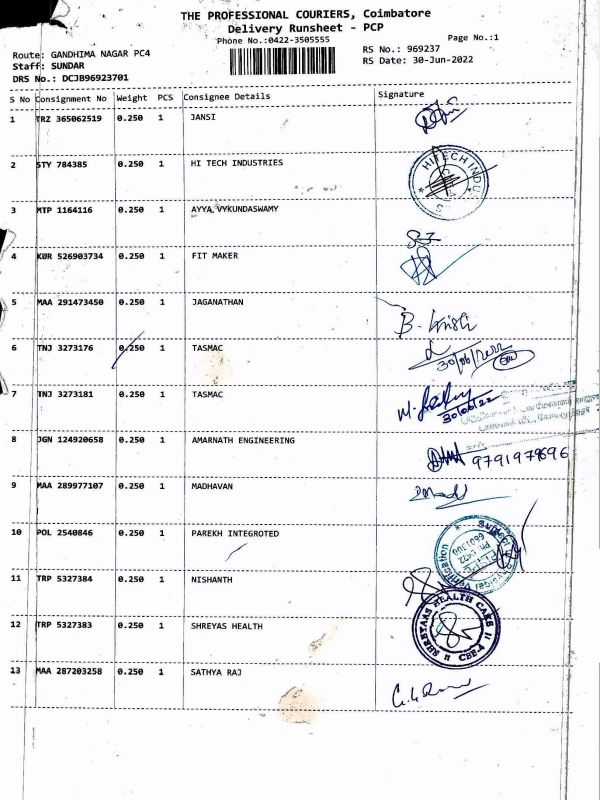 THE PROFESSIONAL COURIERS, Coimbatore
Delivery Runsheet - PCP
Phone No.:0422-3505555
Page No.:1
Route: GANDHIMA NAGAR PC4
RS No.: 969237
Staff: SUNDAR
RS Date: 30-Jun-2022
DRS No.: DCJB96923701
S No Consignment No Weight PCS Consignee Details Signature
1 TRZ 365062519 0.250 1 JANSI
2 STY 784385 0.250 1 HI TECH INDUSTRIES
HITECH INDUS
3 MTP 1164116 0.250 1 AYYA VYKUNDASWAMY
4 KUR 526903734 0.250 1 FIT MAKER
5 MAA 291473450 0.250 1 JAGANATHAN
B.
6 TNJ 3273176 0.250 1 TASMAC
30/06/2022
7 TNJ 3273181 0.250 1 TASMAC
30/06/22
8 JGN 124920658 0.250 1 AMARNATH ENGINEERING
9791979696
9 MAA 289977107 0.250 1 MADHAVAN
10 POL 2540846 0.250 1 PAREKH INTEGROTED
11 TRP 5327384 0.250 1 NISHANTH
12 TRP 5327383 0.250 1 SHREYAS HEALTH
SHREYAAS HEALTH CARE
CBE-4
13 MAA 287203258 0.250 1 SATHYA RAJ